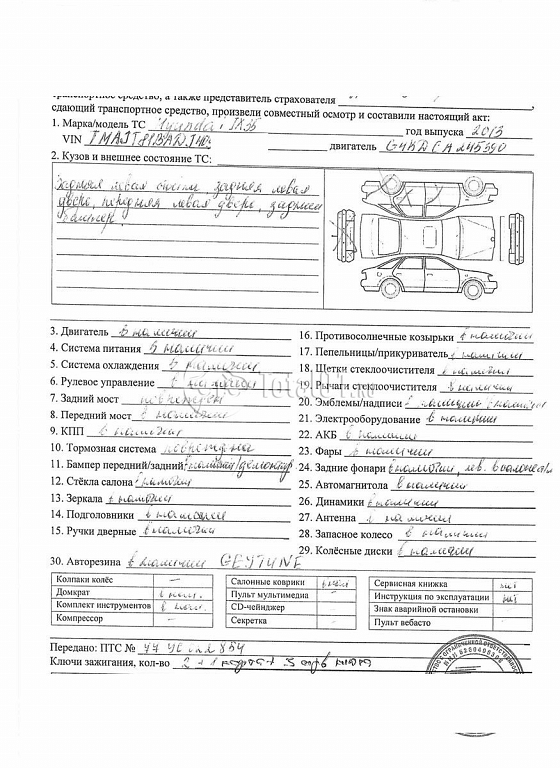 транспортное средство, а также представитель страхователя
сдающий транспортное средство, произвели совместный осмотр и составили настоящий акт:
1. Марка/модель ТС Hyundai IX35 год выпуска 2013
VIN двигатель G4KD
2. Кузов и внешнее состояние ТС:
задняя левая задняя левая
дверь, передняя левая дверь, задний
бампер.
3. Двигатель в наличии
4. Система питания в наличии
5. Система охлаждения в наличии
6. Рулевое управление в наличии
7. Задний мост поврежден
8. Передний мост в наличии
9. КПП в наличии
10. Тормозная система
11. Бампер передний/задний в наличии/демонтир
12. Стёкла салона в наличии
13. Зеркала в наличии
14. Подголовники в наличии
15. Ручки дверные в наличии
16. Противосолнечные козырьки в наличии
17. Пепельницы/прикуриватель в наличии
18. Щетки стеклоочистителя в наличии
19. Рычаги стеклоочистителя в наличии
20. Эмблемы/надписи в наличии
21. Электрооборудование в наличии
22. АКБ в наличии
23. Фары в наличии
24. Задние фонари в наличии, лев.
25. Автомагнитола в наличии
26. Динамики в наличии
27. Антенна в наличии
28. Запасное колесо в наличии
29. Колёсные диски в наличии
30. Авторезина в наличии
Колпаки колёс –
Домкрат в нал.
Комплект инструментов в нал.
Компрессор –
Салонные коврики в нал
Пульт мультимедиа –
CD-чейнджер –
Секретка –
Сервисная книжка нет
Инструкция по эксплуатации нет
Знак аварийной остановки –
Пульт вебасто –
Передано: ПТС № 77
Ключи зажигания, кол-во 2 + 1